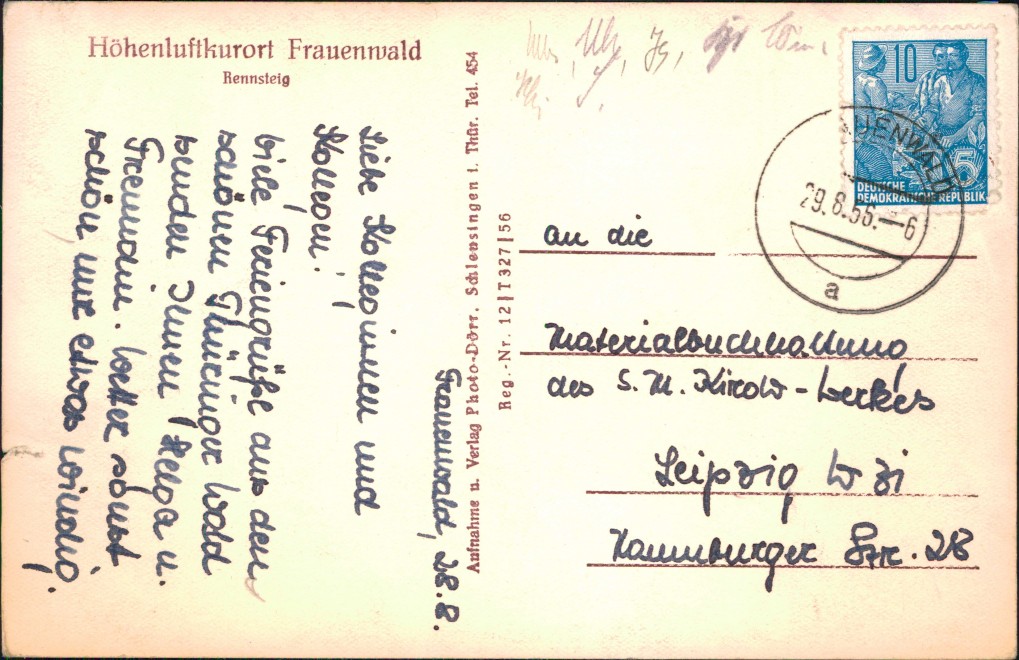 Höhenluftkurort Frauenwald
Rennsteig
Frauenwald, 28.8.
Liebe Kolleginnen und
Kollegen!
Viele Feriengrüße aus dem
schönen Thüringer Wald
senden Ihnen Helga u.
Wetter sonst
schön nur etwas windig.
Aufnahme u. Verlag Photo-Dörr, Schleusingen i. Thür. Tel. 454
Reg.-Nr. 12|T327|56
10
DEUTSCHE
DEMOKRATISCHE REPUBLIK
UENWALD
29.8.56.-6
a
An die
Materialbuchhaltung
des S. M. Kirow-Werkes
Leipzig W 31
Naumburger Str. 28